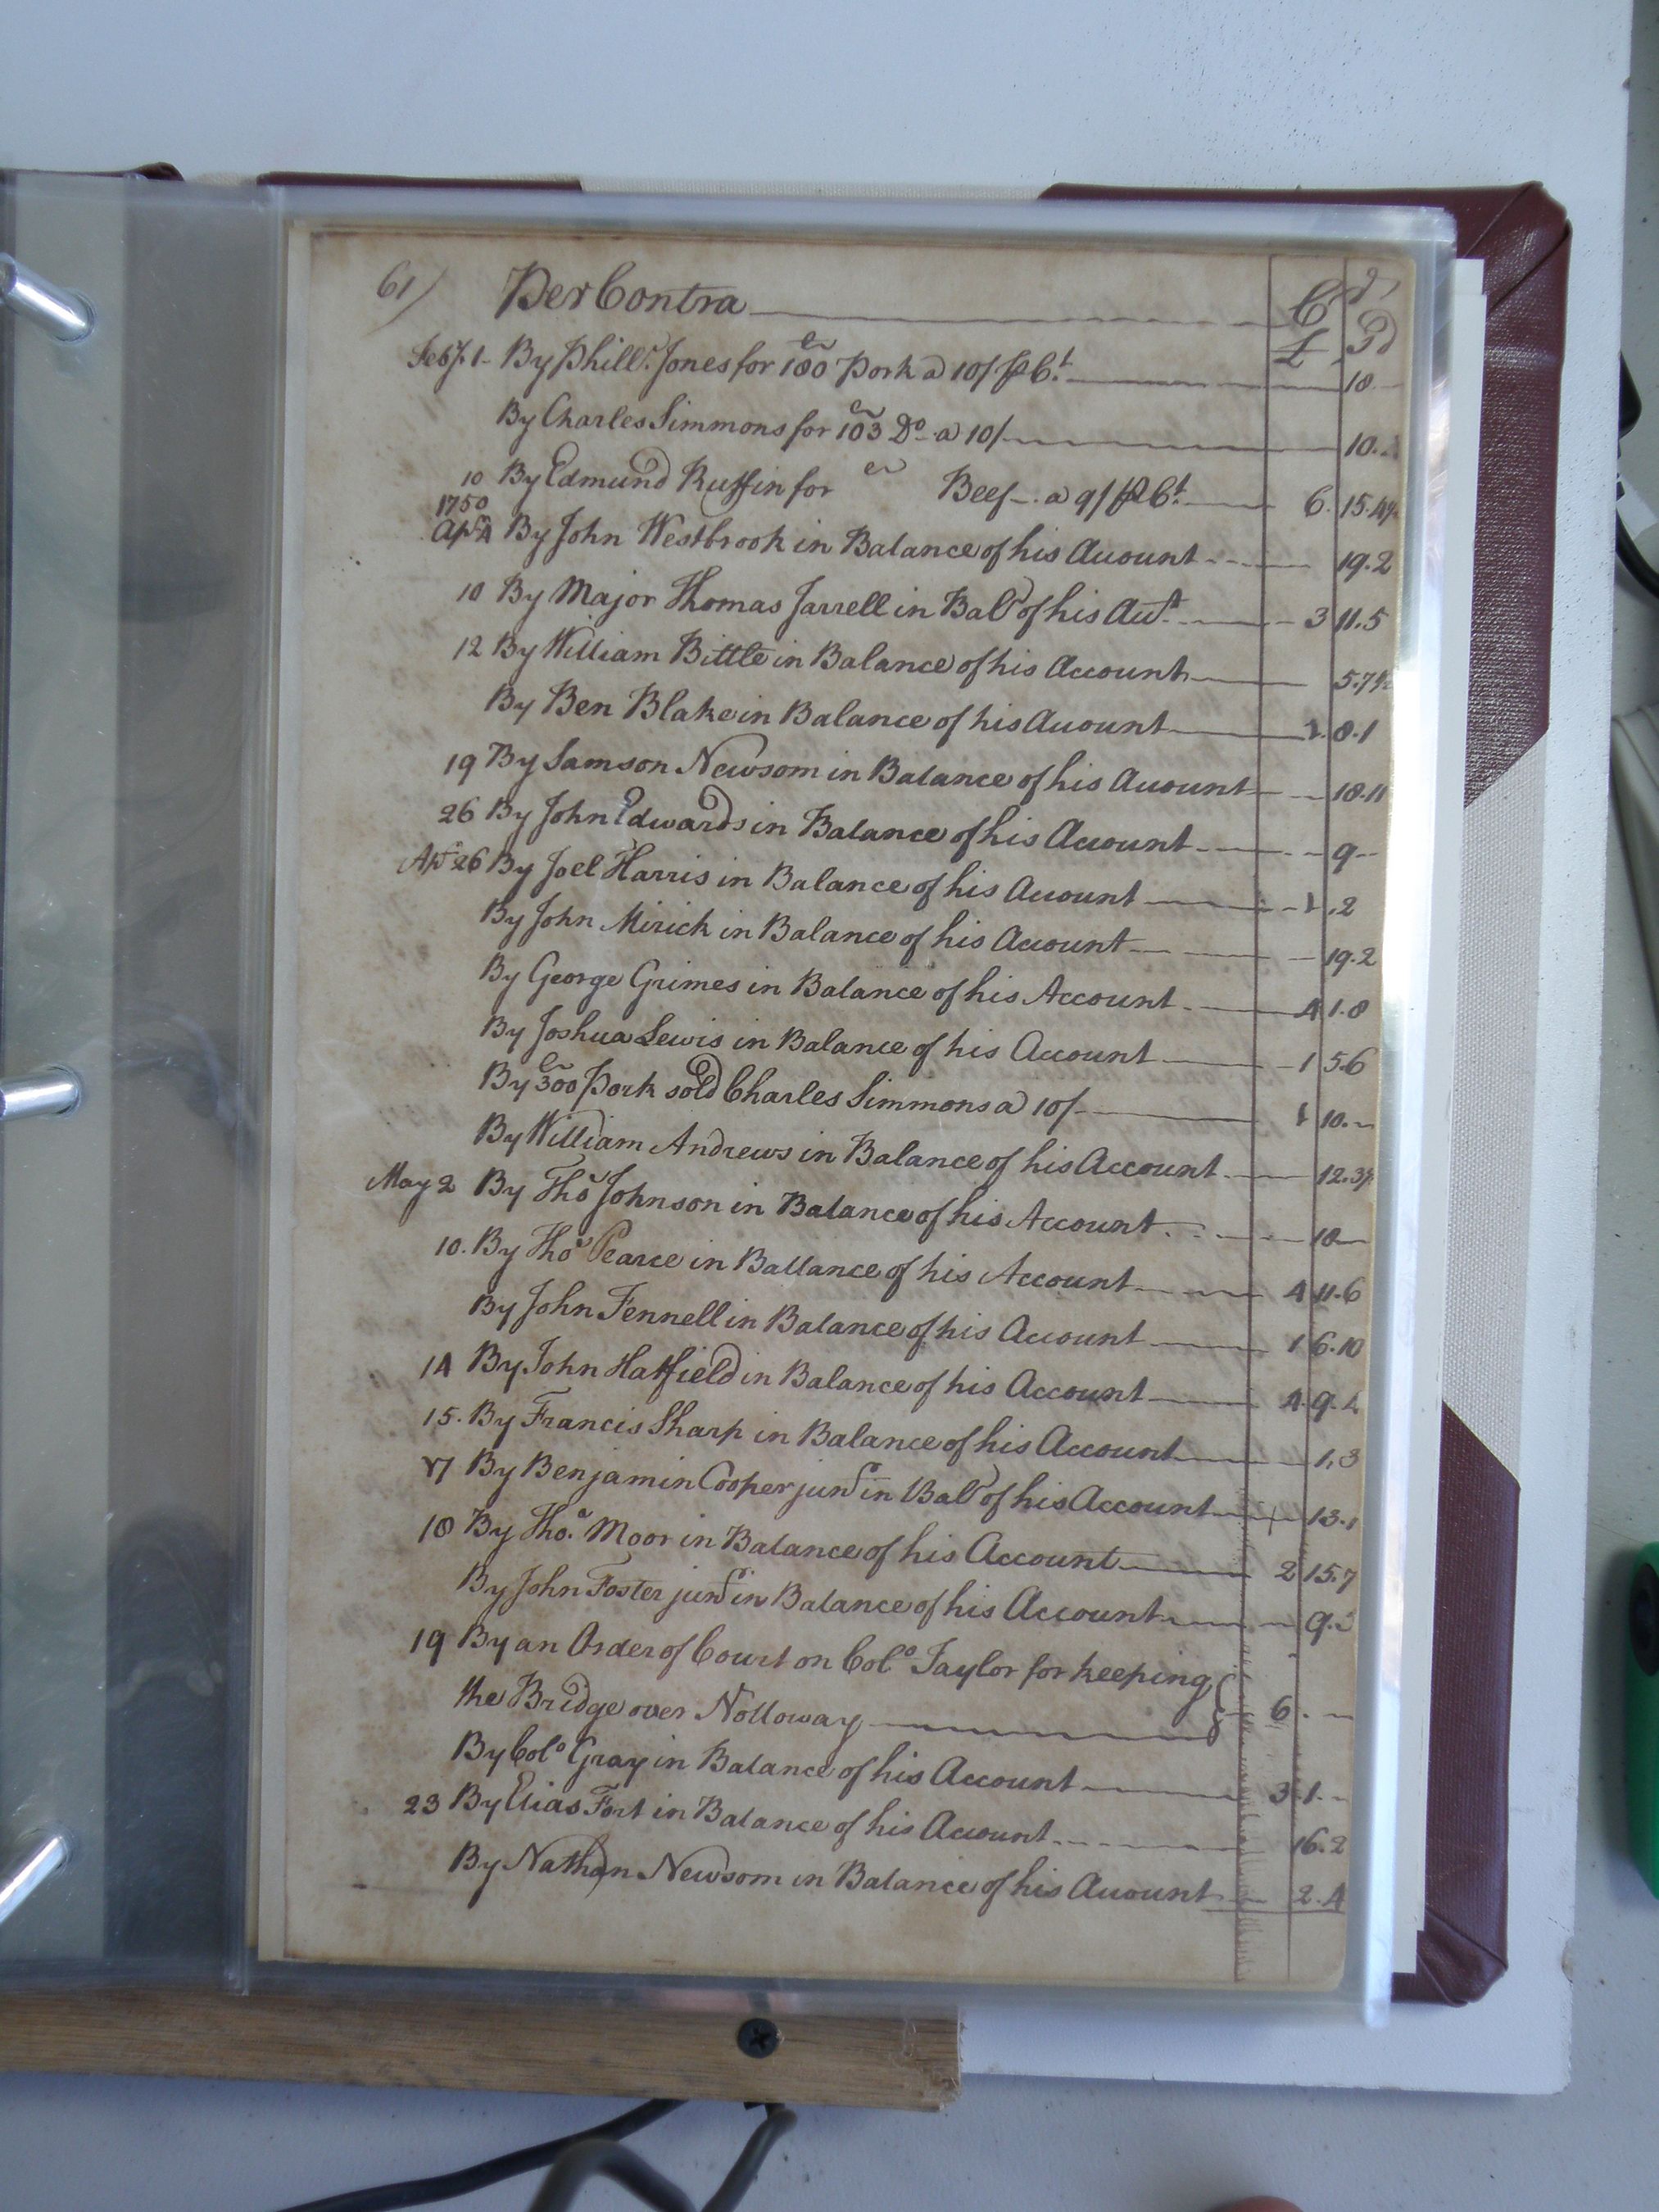 61) Per Contra C r
£ S d
Feby. 1 By Phill. Jones for 180 Pork a 10/ p Ct. 18
By Charles Simmons for 103 Do. a 10/ 10.
10 By Edmund Ruffin for Beef a 9/ p Ct. 6. 15.4½
1750
Apr 4 By John Westbrook in Balance of his Account 19.2
10 By Major Thomas Jarrell in Bale of his Acct. 3 11.5
12 By William Bittle in Balance of his Account 5.7½
By Ben Blake in Balance of his Account 1. 8.1
19 By Samson Newsom in Balance of his Account 18.11
26 By John Edwards in Balance of his Account 9
Apr 26 By Joel Harris in Balance of his Account 1 .2
By John Mirick in Balance of his Account 19.2
By George Grimes in Balance of his Account 4 1.8
By Joshua Lewis in Balance of his Account 1 5.6
By 300 Pork sold Charles Simmons a 10/ 1 10.
By William Andrews in Balance of his Account 12.3½
May 2 By Thos Johnson in Balance of his Account 18
10. By Thos Pearce in Ballance of his Account 4 11.6
By John Fennell in Balance of his Account 1 6.10
14 By John Hatfield in Balance of his Account 4. 9.
15. By Francis Sharp in Balance of his Account 1.3
17 By Benjamin Cooper junr in Bale of his Account 13.1
18 By Thos. Moor in Balance of his Account 2 15.7
By John Foster junr in Balance of his Account 9.
19 By an Order of Court on Colo Taylor for keeping
the Bridge over Nolloway 6.
By Colo Gray in Balance of his Account 3.1.
23 By Elias Fort in Balance of his Account 16.2
By Nathan Newsom in Balance of his Account 2.4